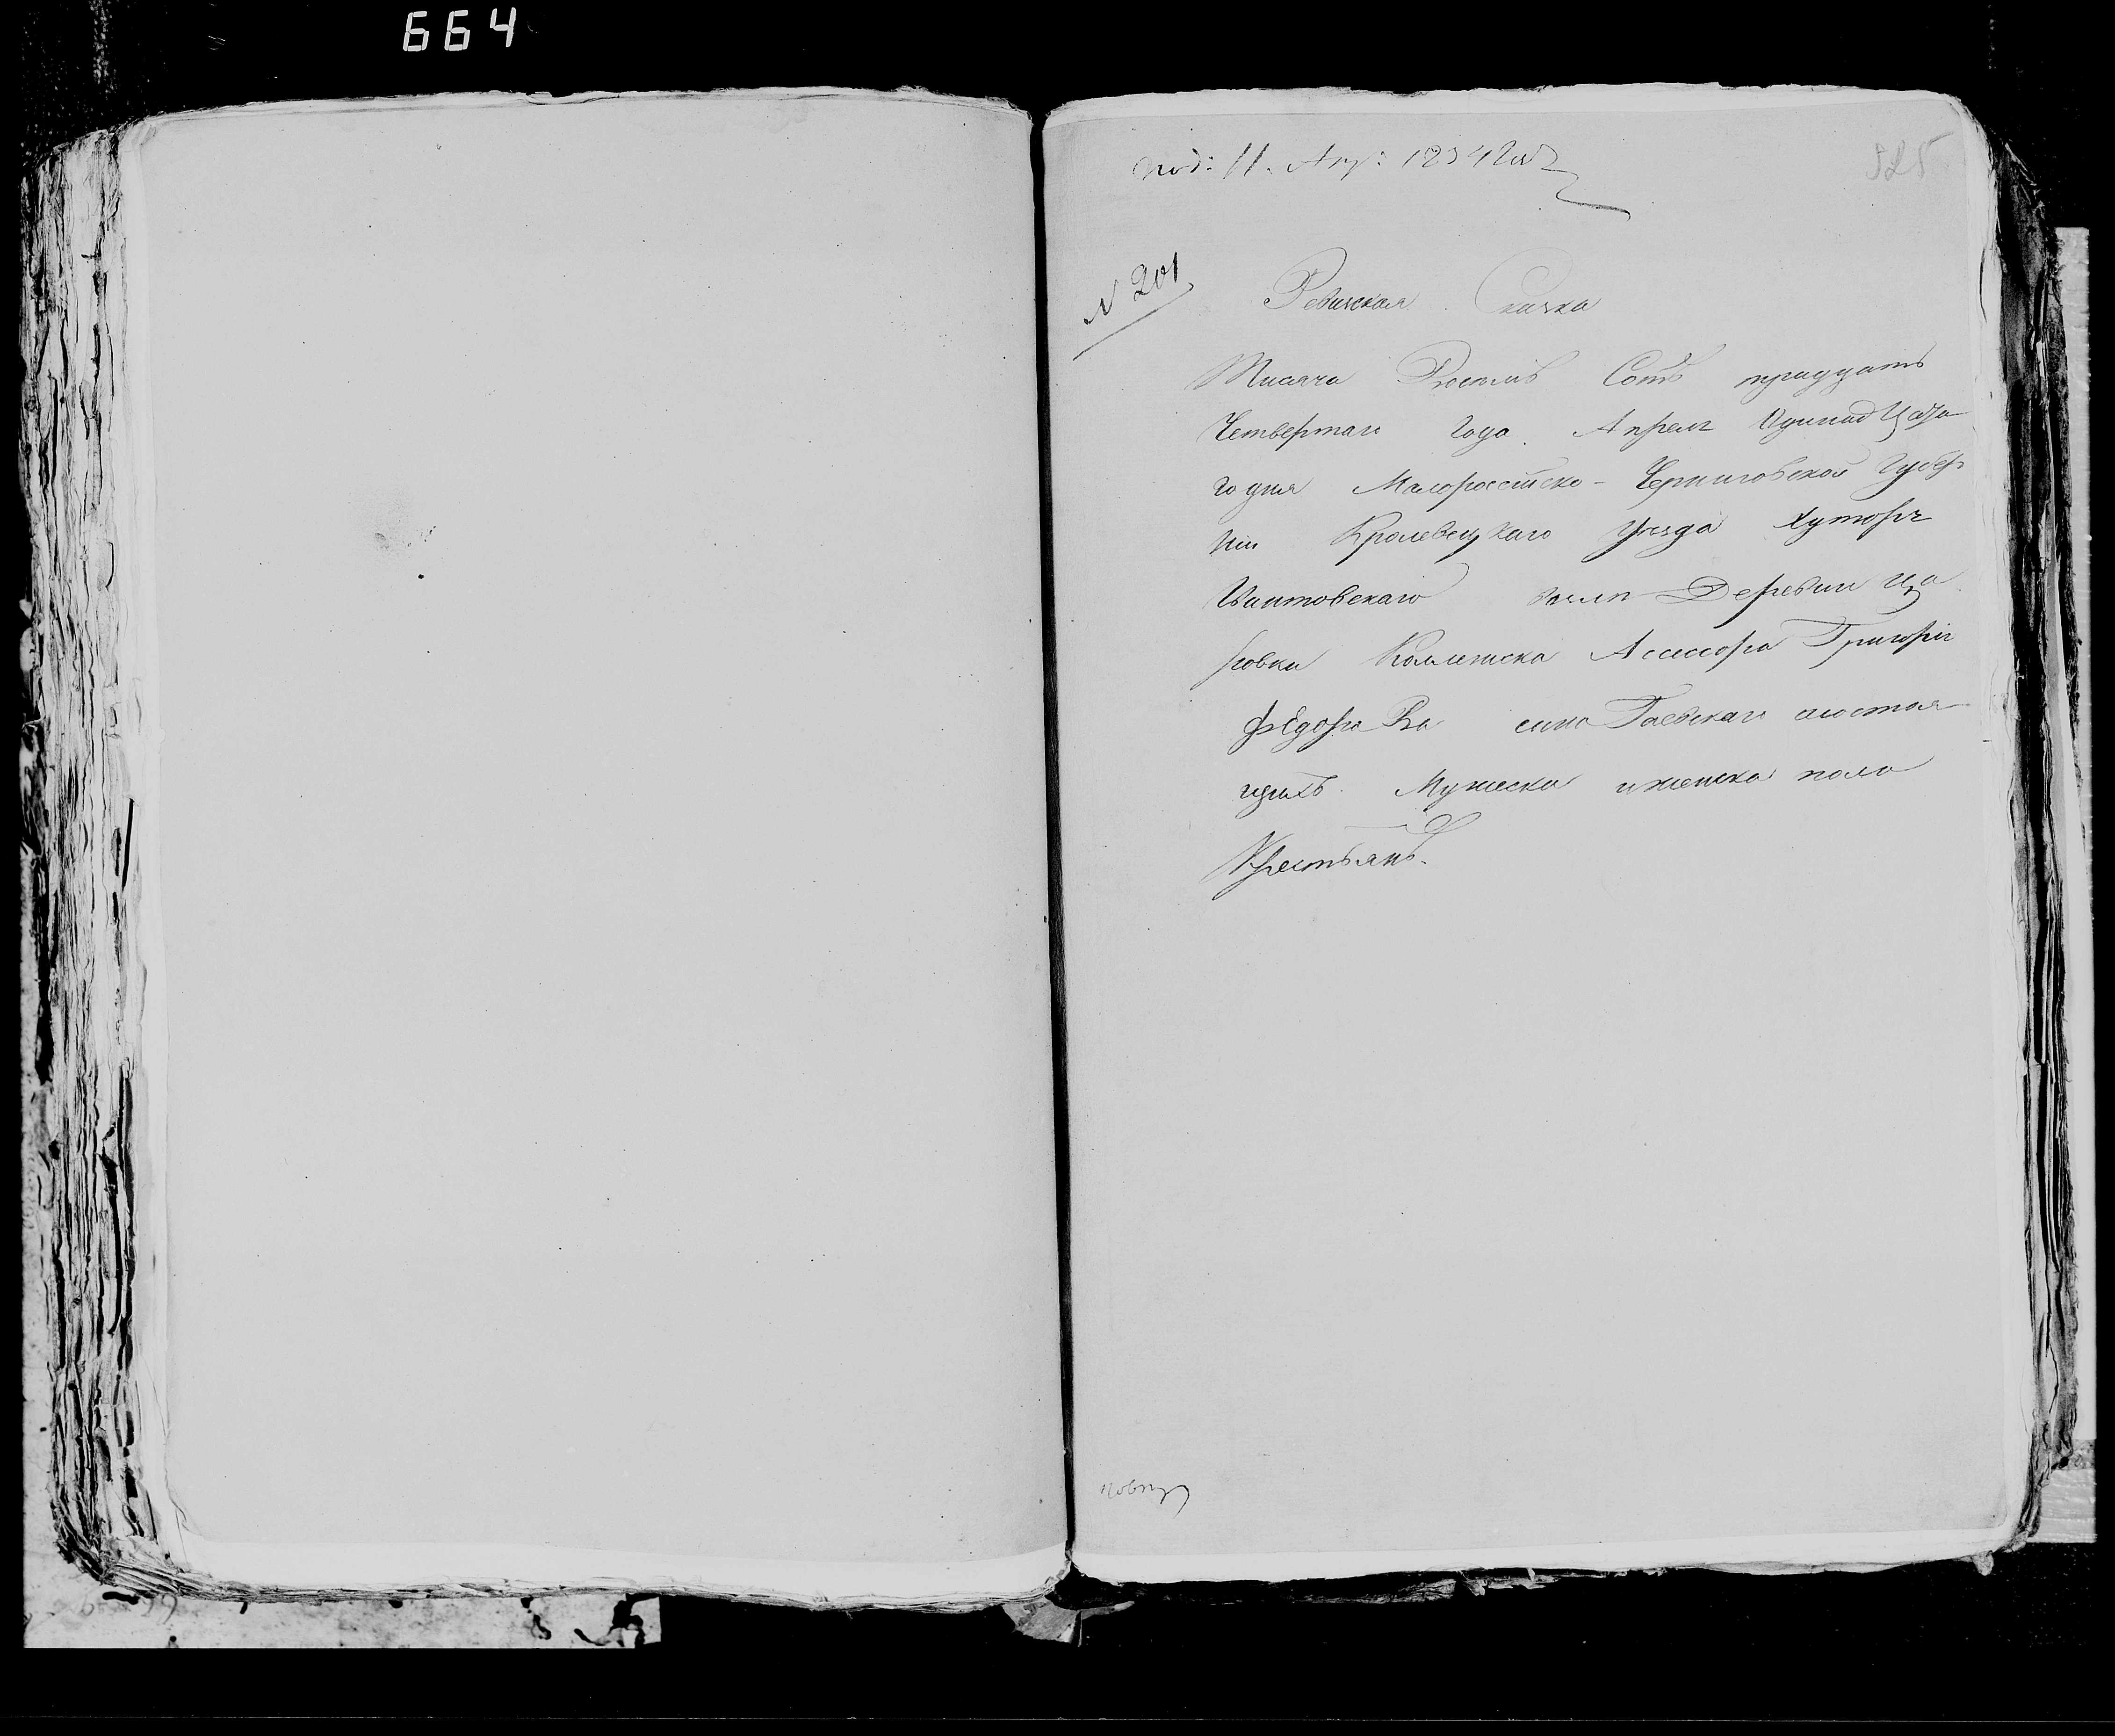 664
под: 11. Апр: 1834 года
325
N 201
Ревизская Сказка
Тисяча Восемъ Сотъ тридцать
Четвертаго Года Апреля Одинадцата
го дня Малороссійско-Черниговской Губер
ніи Кролевецкаго Уезда Хуторе
возле Деревни Ца
ровки Колежска Асессора Григорія
Федорова сина Гаевскаго состоя
щихъ Мужеска и женска пола
Крестьянъ.